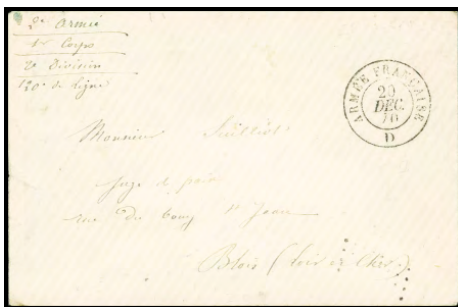 2e Armée
1er Corps
2e Division
120e de ligne
ARMÉE FRANÇAISE
20
DÉC.
70
D
Monsieur
Juge de paix
rue du bourg St Jean
Blois (loir et Cher)